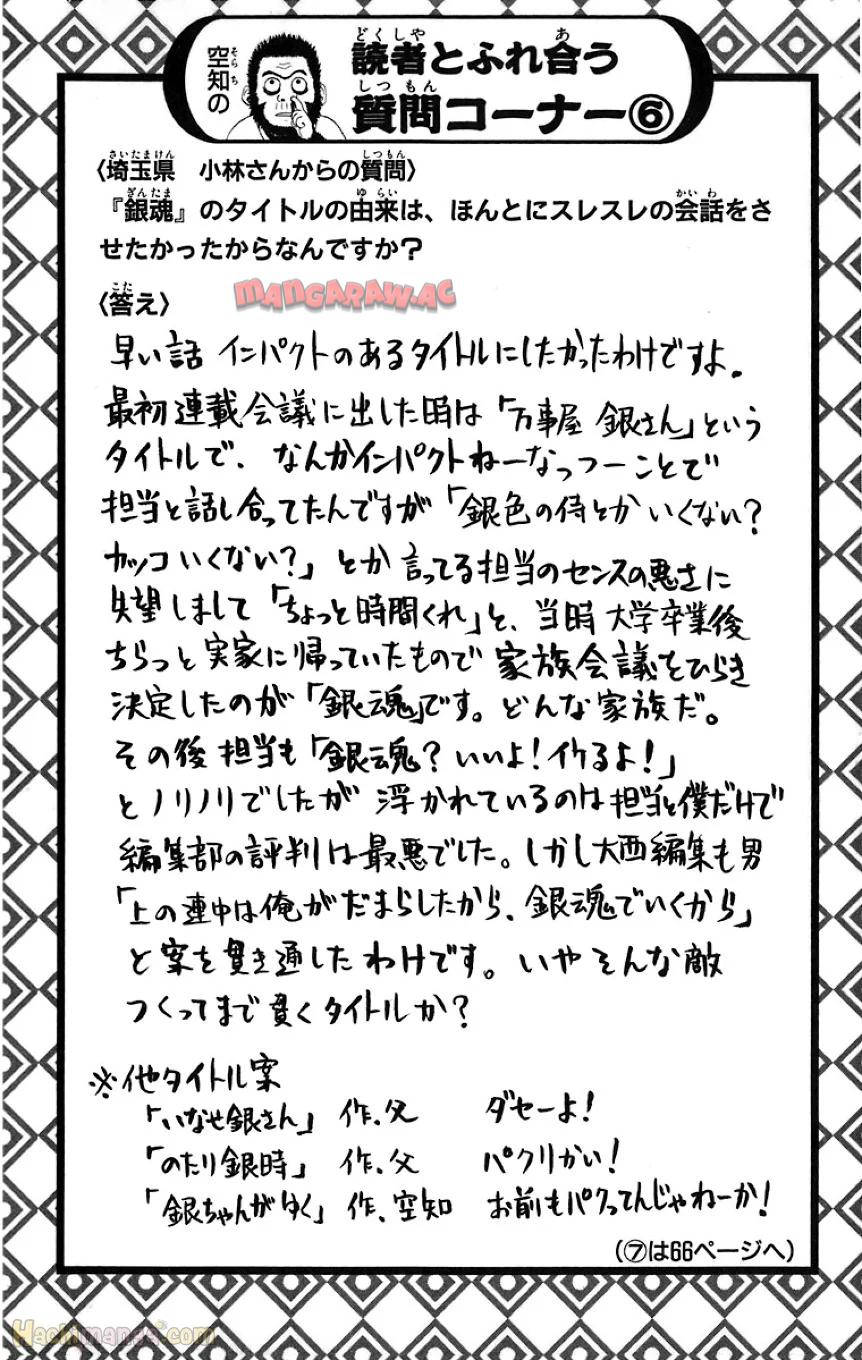 空知の
読者とふれ合う
質問コーナー⑥
〈埼玉県　小林さんからの質問〉
『銀魂』のタイトルの由来は、ほんとにスレスレの会話をさ
せたかったからなんですか？
MANGARAW.AC
〈答え〉
早い話 インパクトのあるタイトルにしたかったわけですよ。
最初連載会議に出した時は「万事屋 銀さん」という
タイトルで、なんかインパクトねーなっつーことで
担当と話し合ってたんですが「銀色の侍とか いくない?
カッコいくない?」とか 言ってる担当のセンスの悪さに
失望しまして「ちょっと時間くれ」と、当時 大学卒業後
ちらっと実家に帰っていたもので 家族会議をひらき
決定したのが「銀魂」です。どんな家族だ。
その後 担当も「銀魂? いいよ! イケるよ!」
とノリノリでしたが 浮かれているのは担当と僕だけで
編集部の評判は最悪でした。しかし大西編集も男
「上の連中は俺がだまらしたから、銀魂でいくから」
と案を貫き通したわけです。いや そんな敵
つくってまで 貫くタイトルか?
※他タイトル案
「いなせ銀さん」 作、父 ダセーよ!
「のたり銀時」 作、父 パクリかい!
「銀ちゃんがゆく」 作、空知 お前もパクってんじゃねーか!
(⑦は66ページへ)
Hachimanga.com